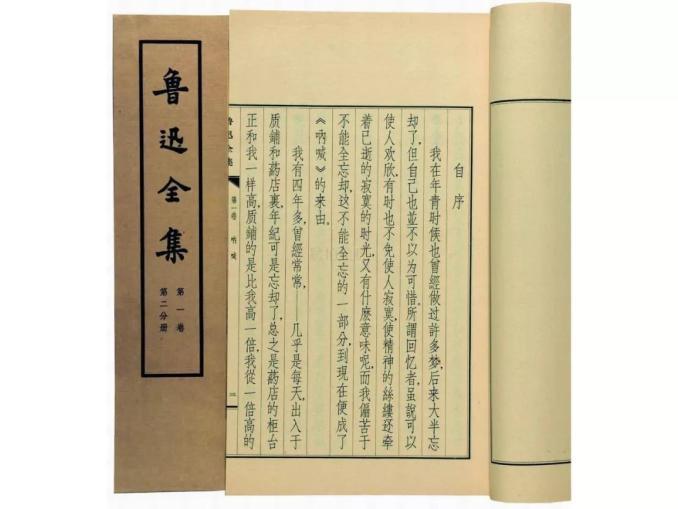 鲁迅全集
第一卷
第二分册
自序
我在年青时候也曾經做过許多梦，后来大半忘
却了，但自己也並不以为可惜。所謂回忆者，虽說可以
使人欢欣，有时也不免使人寂寞，使精神的絲縷还牽
着已逝的寂寞的时光，又有什麽意味呢，而我偏苦于
不能全忘却，这不能全忘的一部分，到现在便成了
《吶喊》的来由。
我有四年多，曾經常常，——几乎是每天，出入于
质鋪和药店裏，年紀可是忘却了，总之是药店的柜台
正和我一样高，质鋪的是比我高一倍，我從一倍高的
魯迅全集
第一卷
吶喊
三